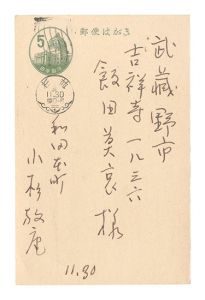 郵便はがき
5
11.30
武蔵野市
吉祥寺一八三六
飯田莫哀様
和田本町
小杉放庵
11.30